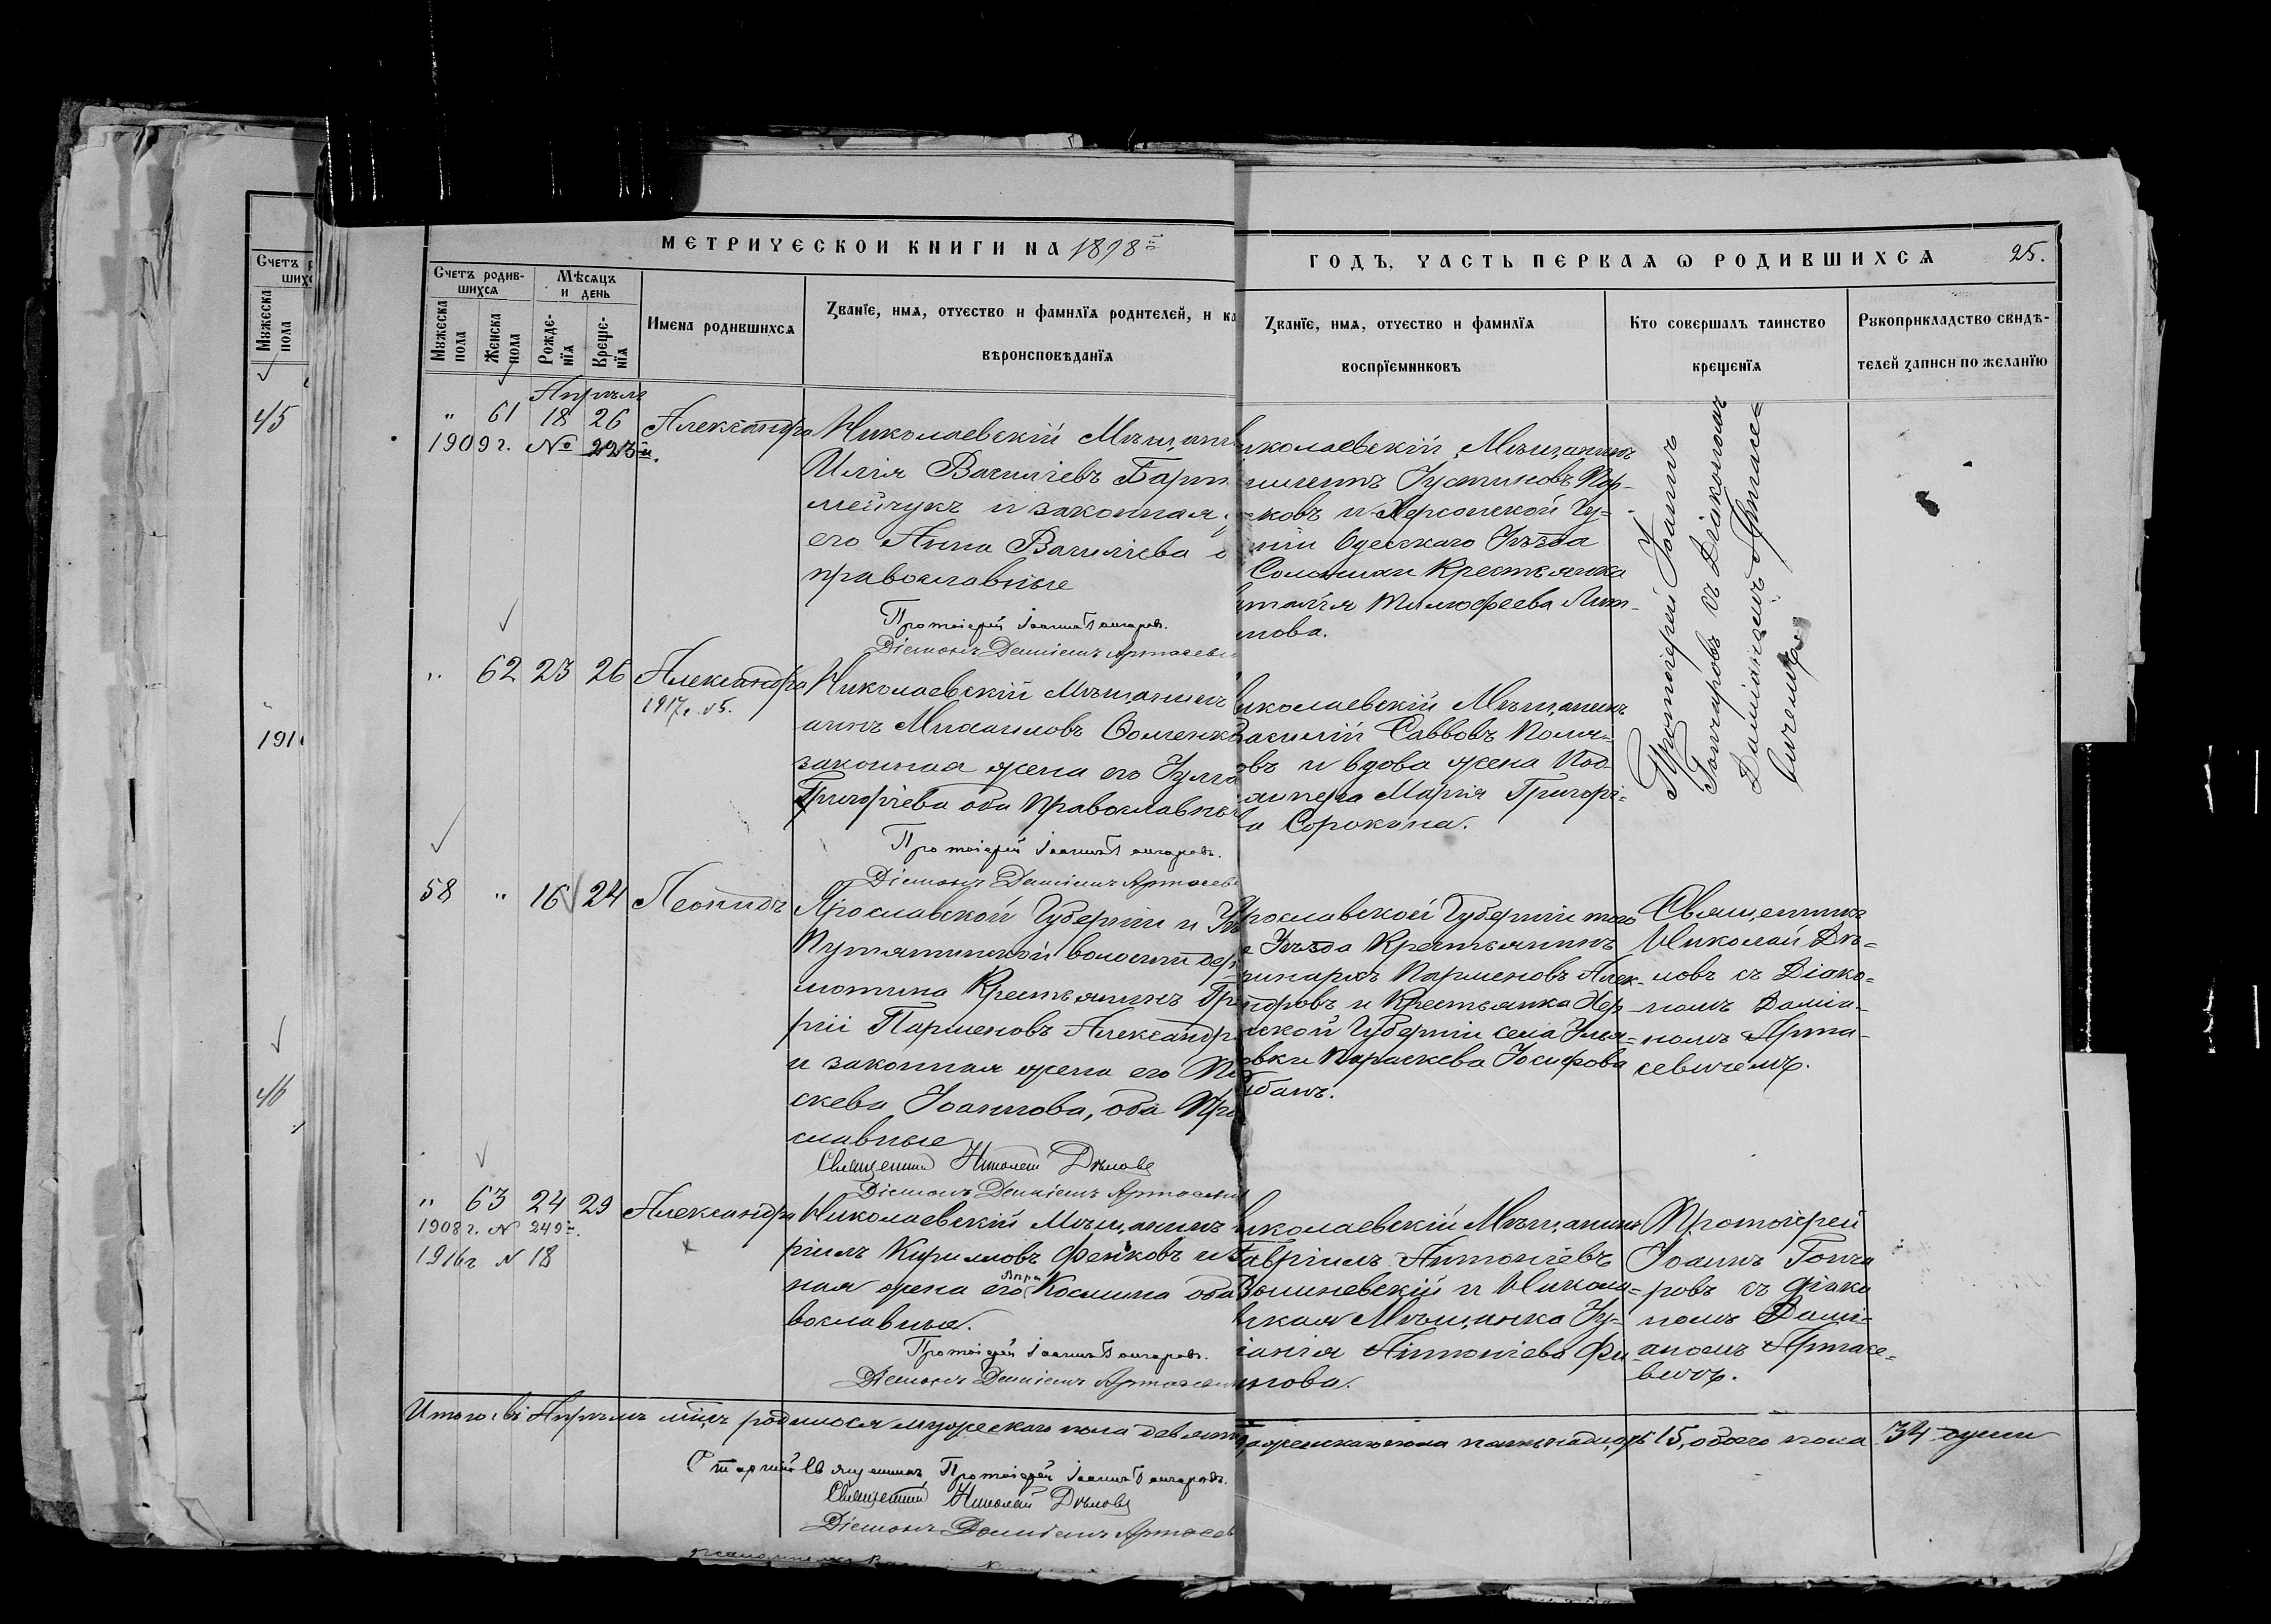 МЕТРИЧЕСКОИ КНИГИ НА 1898й
ГОДЪ, ЧАСТЬ ПЕРВАЯ Ѡ РОДИВШИХСЯ 25.
Счетъ родив-
шихся
Мѣсяцъ
и день
Мужеска
пола
Женска
пола
Рожде-
нїя
Креще-
нїя
Имена родившихся
Званїе, имя, отчество и фамилїя родителей, и ка
вѣроисповѣданїя
Званїе, имя, отчество и фамилїя
воспрїемниковъ
Кто совершалъ таинство
крещенїя
Рукоприкладство свидѣ-
телей записи по желанїю
Счетъ р
шихс
Мужеска
пола
45
191
46
Апрѣль
" 61 18 26 Александра
1909 г. № 223й.
Николаевскій Мѣщанин
Илія Василіевъ Барт
мейчукъ и законная
его Анна Василіева о
православные
Протоіерей Іоаннъ Гончаровъ.
Діаконъ Даміанъ Артасеви
иколаевскій Мѣщанинъ
Іустиновъ
ковъ и Херсонской Гу=
ніи Одесскаго Уѣзда
Крестьянка
Тимофеева
нова.
Протоіерей Іоаннъ
Гончаровъ съ Діакономъ
Даміаномъ Артасе=
вичемъ.
" 62 23 26 Александра
1917 г. № 5.
Николаевскій Мѣщанинъ
аннъ Михаиловъ
законная жена его Іулія
Григоріева оба Православны
Протоіерей Іоаннъ Гончаровъ.
Діаконъ Даміанъ Артасеви
иколаевскій Мѣщанинъ
асилій Саввовъ Поля=
овъ и вдова жена Под-
Марія Григорі=
ва Сорокина.
58 " 16 24 Леонидъ
Ярославской Губерніи и Уѣ
Путятинской волости дер
мотина Крестьянинъ Гри
рій Парменовъ Александр
и законная жена его Па
скева Іоаннова, оба Пра
славные
Священникъ Николай Дѣловъ
Діаконъ Даміанъ Артасеви
рославской Губерніи того
е Уѣзда Крестьянинъ
Парменовъ Алек-
ндровъ и Крестьянка Хер-
нской Губерніи села Улья=
овки Параскева Іосифова
банъ.
Священникъ
Николай Дѣ=
ловъ съ Діако=
номъ Даміа-
номъ Арта-
севичемъ.
" 63 24 29 Александра
1908 г. № 249й.
1916 г № 18
Николаевскій Мѣщанинъ
ріилъ Кирилловъ Фенковъ и
ная жена его Космина оба
вославные.
Протоіерей Іоаннъ Гончаровъ.
Діаконъ Даміанъ Артасеви
иколаевскій Мѣщанинъ
Гавріилъ Антоніевъ
и Никола=
вская Мѣщанка Іу=
іанія Антоніева Фи-
нова.
Протоіерей
Іоаннъ Гонча
ровъ съ діако
номъ Даміа-
аномъ Артасе=
вичъ.
Итого: въ Апрѣлѣ мцѣ родилося мужескаго пола девятна
женскаго пола пятнадцать 15, обоего пола 34 души
Старшій Священникъ, Протоіерей Іоаннъ Гончаровъ.
Священникъ Николай Дѣловъ
Діаконъ Даміанъ Артасев